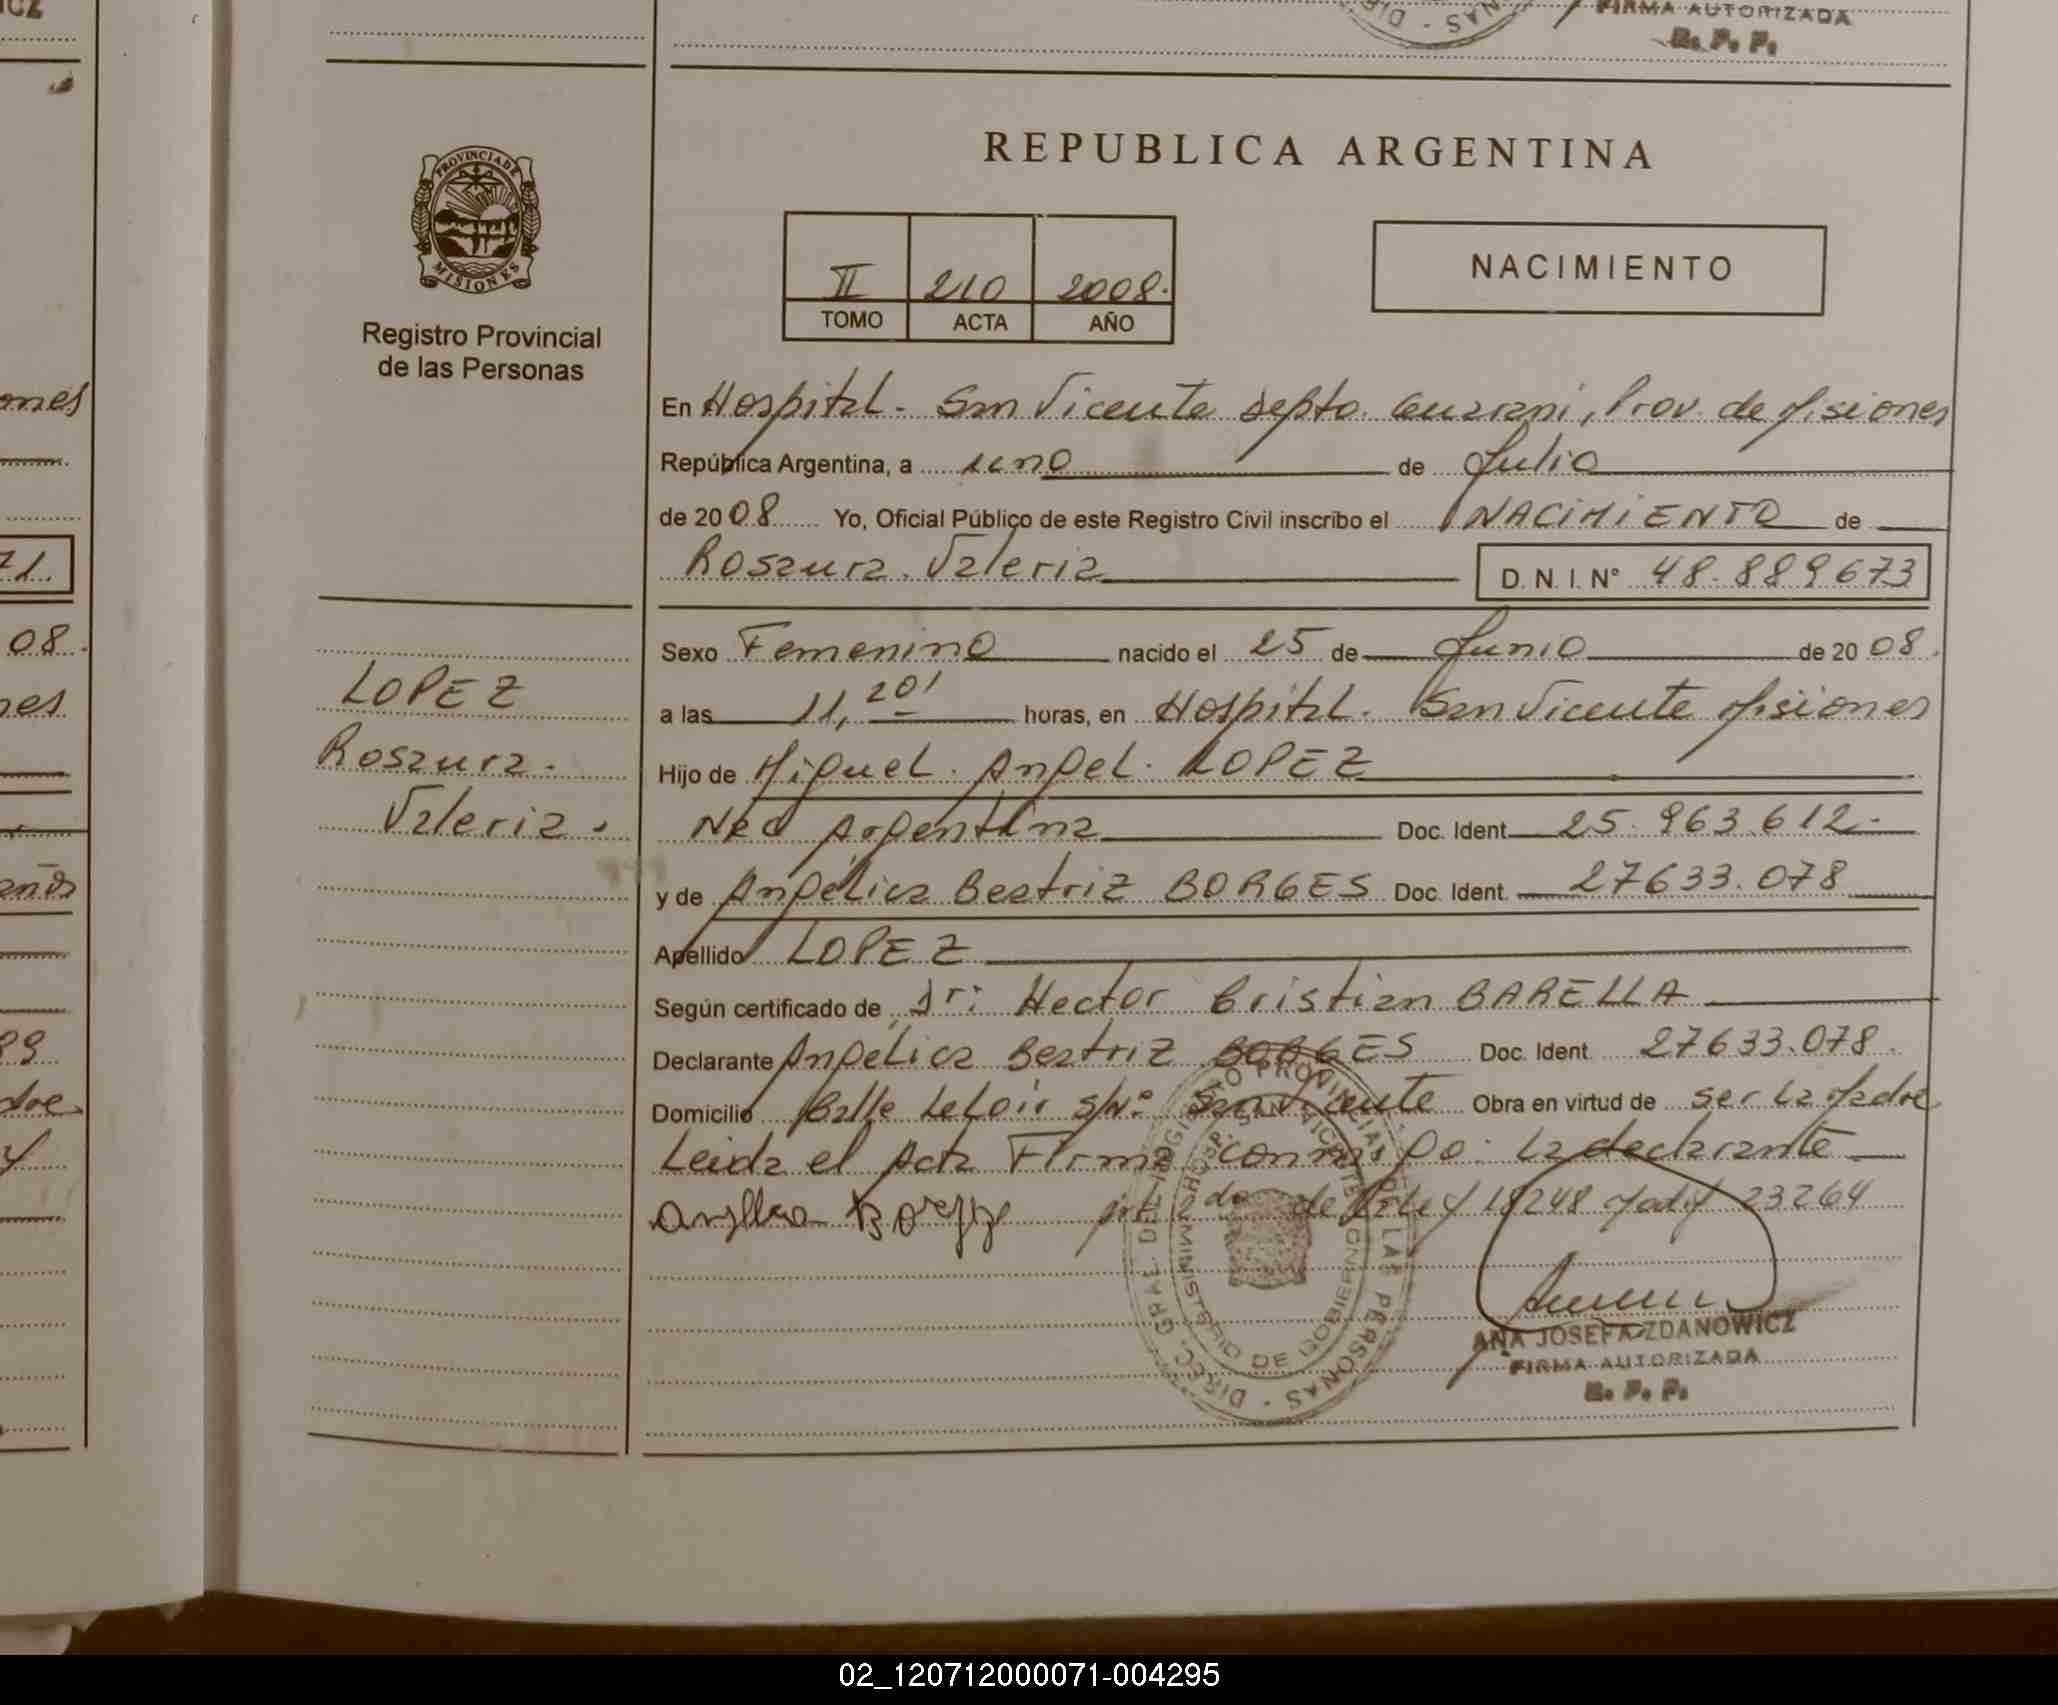 FIRMA AUTORIZADA
R. P. P.
PROVINCIA DE
MISIONES
Registro Provincial
de las Personas
REPUBLICA ARGENTINA
II 210 2008.
TOMO ACTA AÑO
NACIMIENTO
En Hospital - San Vicente Depto. Guarani, Prov. de Misiones
República Argentina, a uno de Julio
de 2008 Yo, Oficial Público de este Registro Civil inscribo el NACIMIENTO de
Rosaura Valeria D. N. I. N° 48.889673
LOPEZ
Rosaura.
Valeria.
Sexo Femenino nacido el 25 de Junio de 2008.
a las 11,20' horas, en Hospital. San Vicente Misiones
Hijo de Miguel. Angel. LOPEZ
Nac Argentina Doc. Ident. 25.963.612.
y de Angélica Beatriz BORGES Doc. Ident. 27633.078
Apellido LOPEZ
Según certificado de Dr: Hector Cristian BARELLA
Declarante Angelica Beatriz BORGES Doc. Ident. 27633.078.
Domicilio Calle LeLoir S/N° San Vicente Obra en virtud de ser la Madre
Leida el Acta Firma conmigo: la declarante
de Ley 18248 Modif 23264
DIREC. GRAL. DEL REGISTRO PROVINCIAL DE LAS PERSONAS
HOSP. SAN VICENTE
MINISTERIO DE GOBIERNO
ANA JOSEFA ZDANOWICZ
FIRMA AUTORIZADA
R. P. P.
71.
08.
02_120712000071-004295